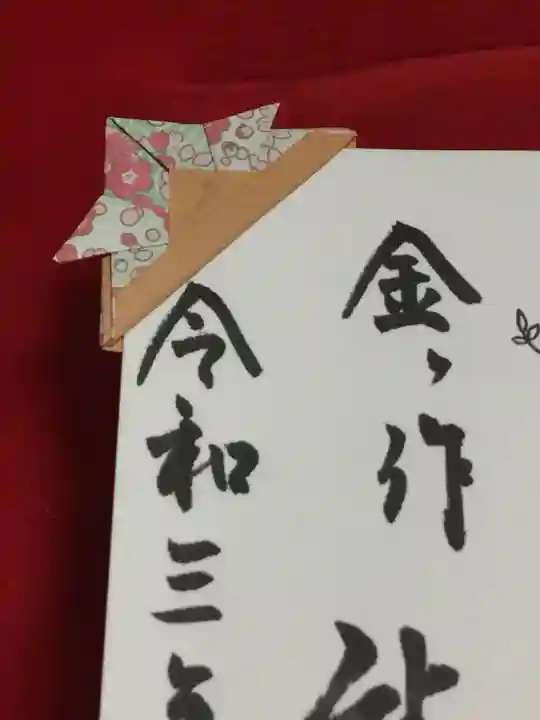 金ヶ作
令和三年